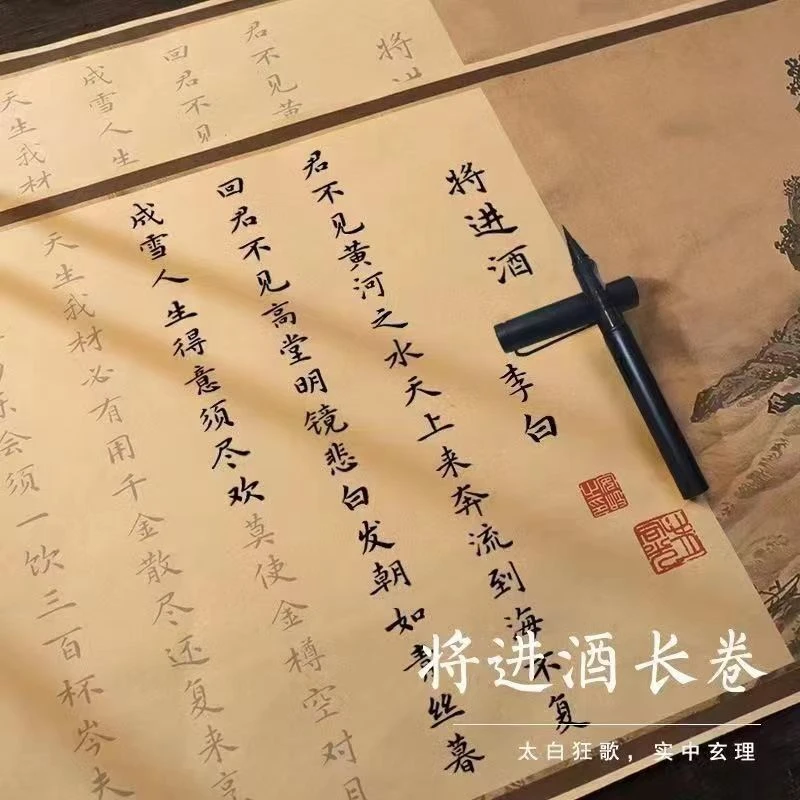 将进酒
李白
君不见黄河之水天上来奔流到海不复
回君不见高堂明镜悲白发朝如青丝暮
成雪人生得意须尽欢莫使金樽空对月
天生我材必有用千金散尽还复来烹
乐会须一饮三百杯岑夫
将进
君不见黄
回君不见
成雪人生
天生我材
将进酒长卷
太白狂歌，实中玄理